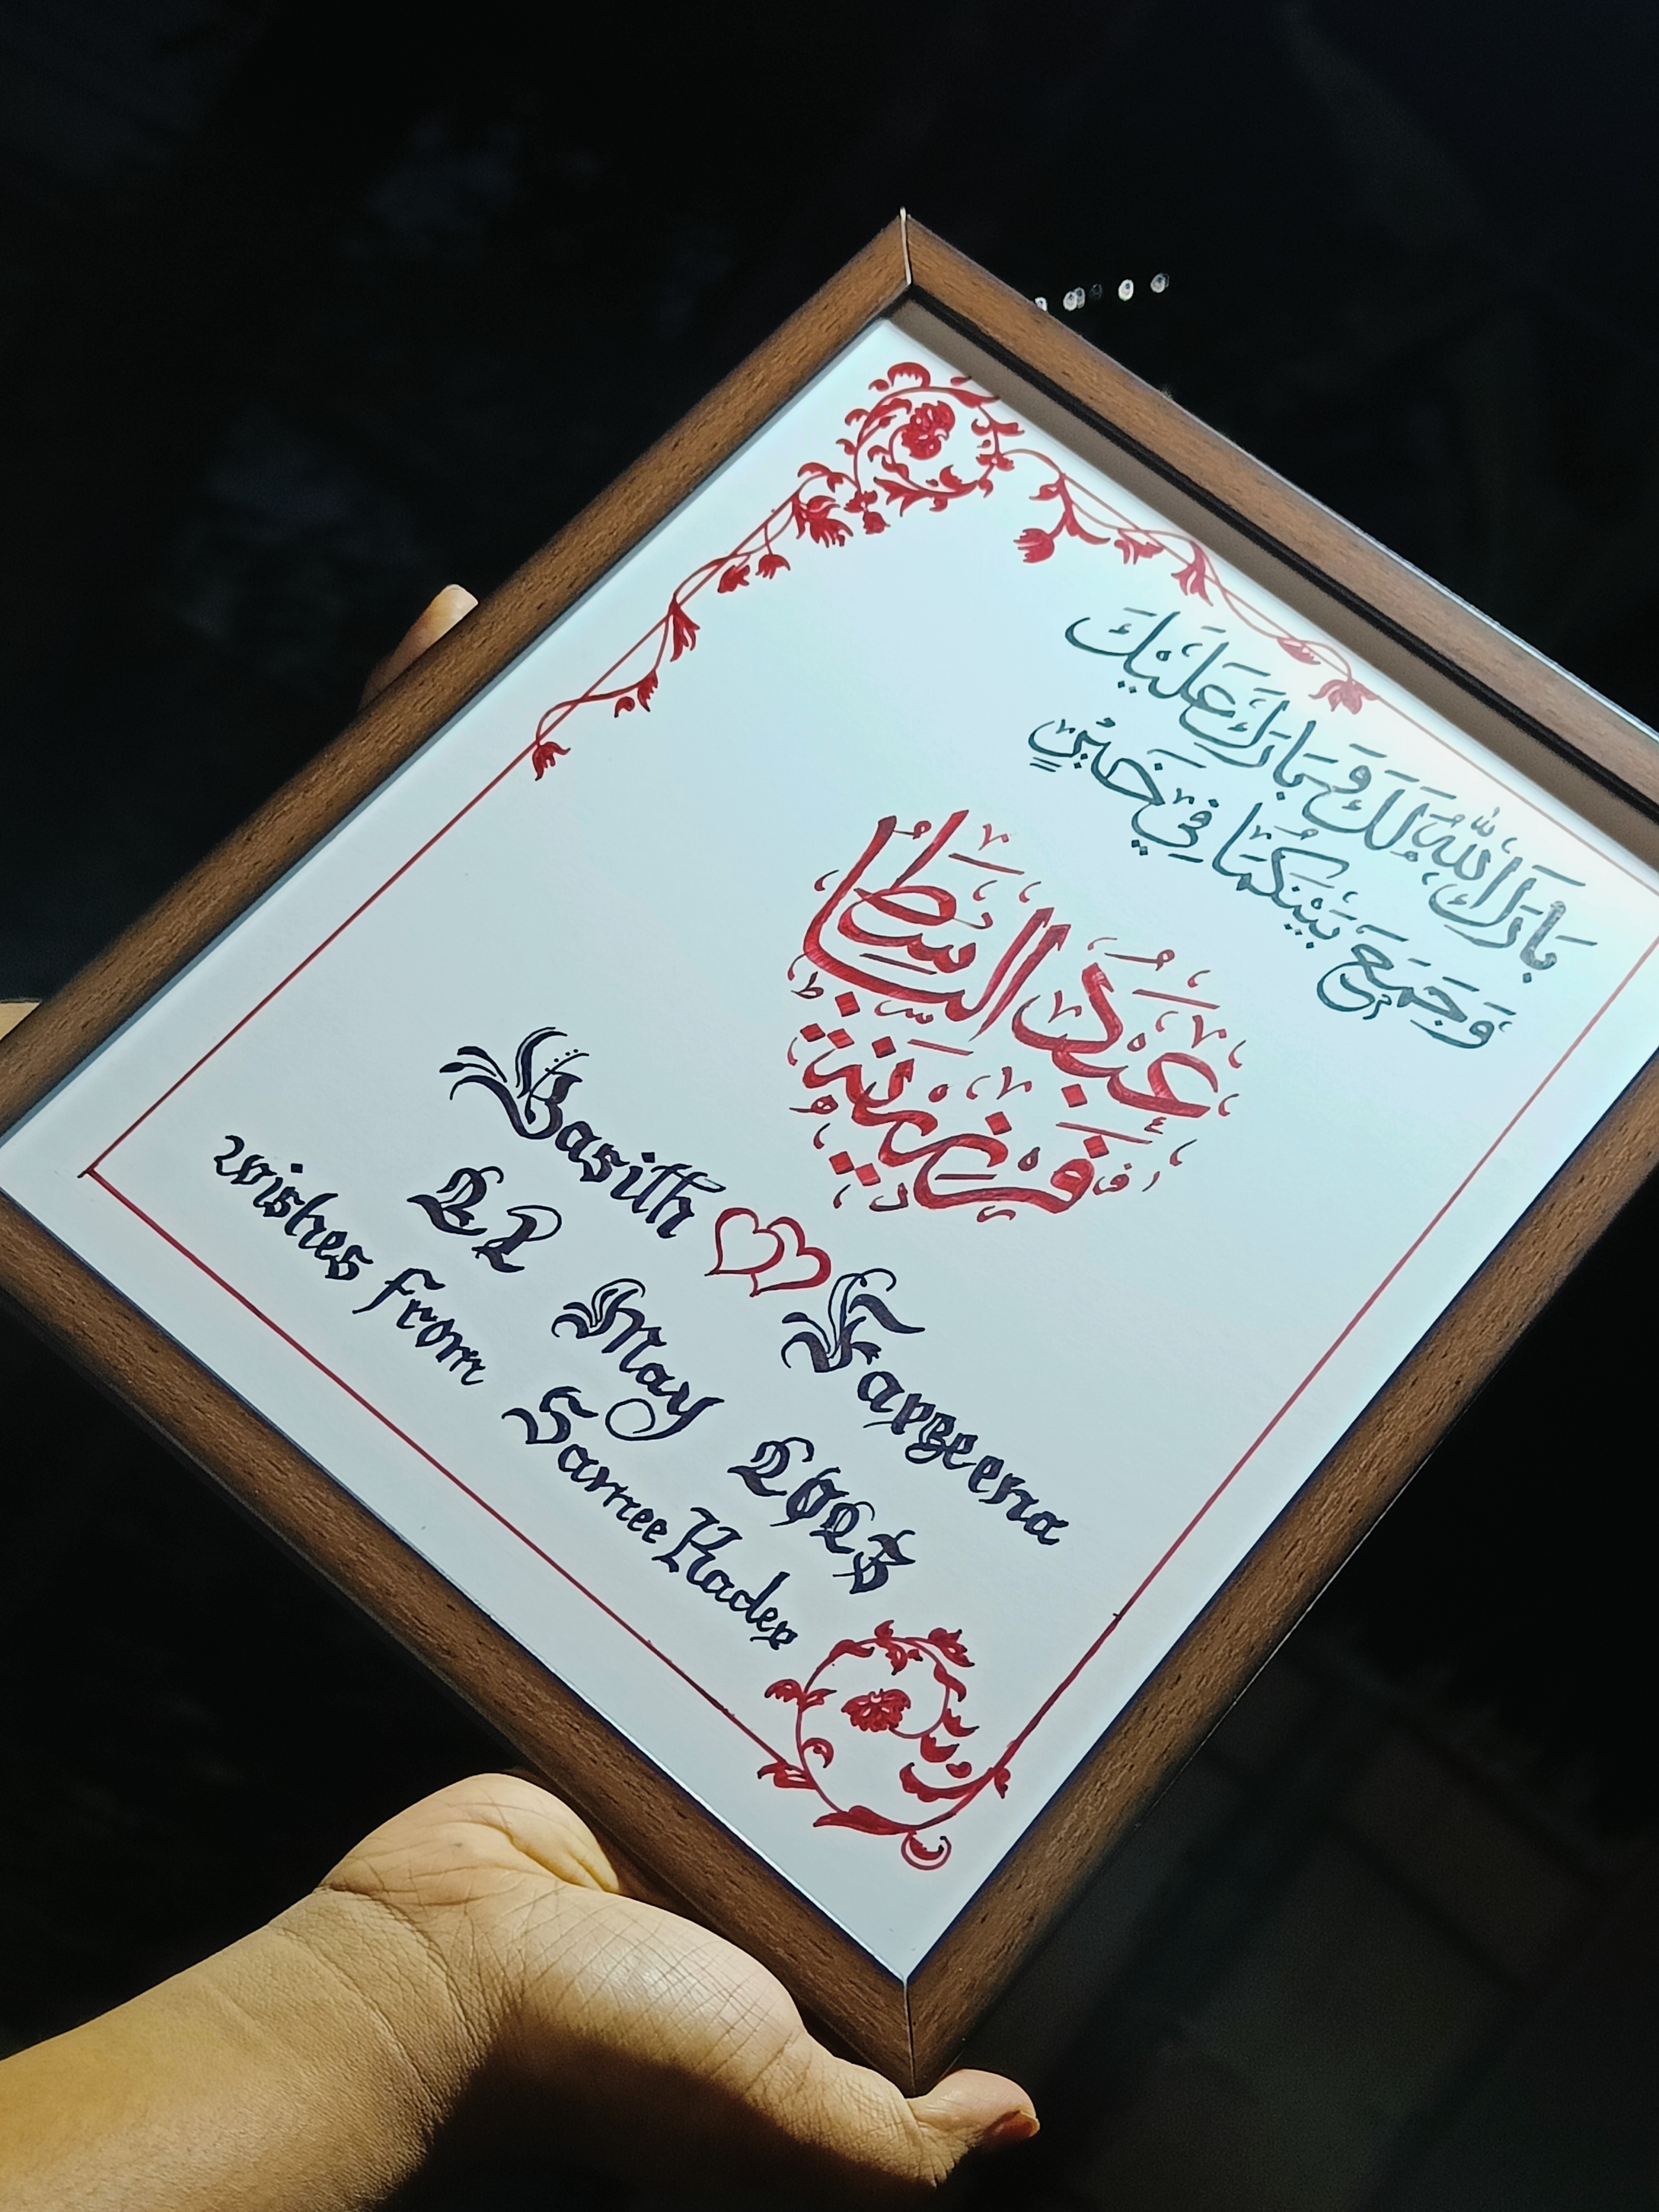 بَارَكَ اللهُ لَكَ وَبَارَكَ عَلَيْكَ
وَجَمَعَ بَيْنَكُمَا فِي خَيْرٍ
عَبْدُ الْبَاسِطْ
فَرْزِينَة
Basith Farzeena
22 May 2025
wishes from Samee Kader